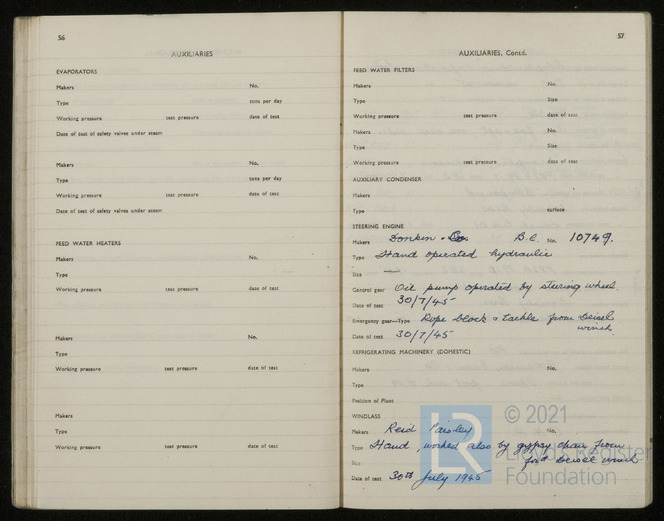 56
AUXILIARIES
EVAPORATORS
Makers No.
Type tons per day
Working pressure test pressure date of test
Date of test of safety valves under steam
Makers No.
Type tons per day
Working pressure test pressure date of test
Date of test of safety valves under steam
FEED WATER HEATERS
Makers No.
Type
Working pressure test pressure date of test
Makers No.
Type
Working pressure test pressure date of test
Makers
Type
Working pressure test pressure date of test
57
AUXILIARIES, Contd.
FEED WATER FILTERS
Makers No.
Type Size
Working pressure test pressure date of test
Makers No.
Type Size
Working pressure test pressure date of test
AUXILIARY CONDENSER
Makers
Type surface
STEERING ENGINE
Makers Donkin & Co. No. 10749.
Type Hand operated hydraulic
Size —
Control gear Oil pump operated by steering wheel.
Date of test 30/7/45
Emergency gear—Type Rope block & tackle from deisel
winch
Date of test 30/7/45
REFRIGERATING MACHINERY (DOMESTIC)
Makers No.
Type
Position of Plant
WINDLASS
Makers Reid Paisley No.
Type Hand, worked also by gypsy chain from
Size for'd deisel winch
Date of test 30th July 1945
LR
© 2021
Lloyd's Register
Foundation